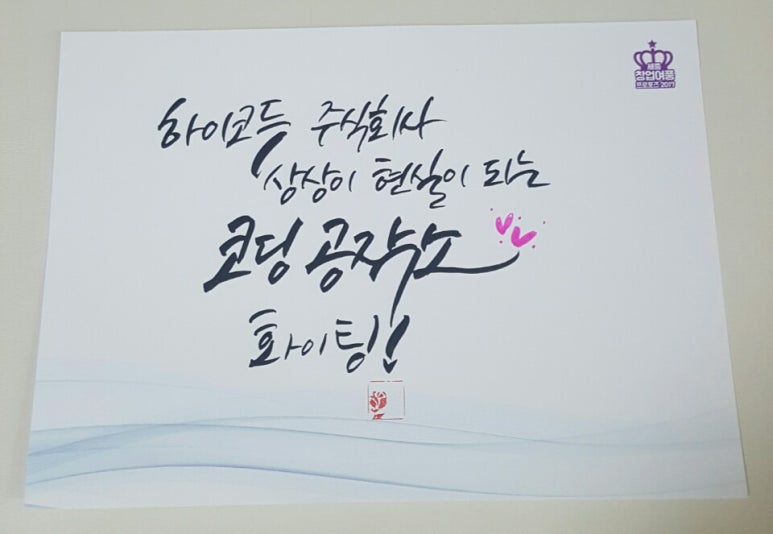 세종
창업여풍
프로포즈 2017
하이코두 주식회사
상상이 현실이 되는
코딩 공작소
화이팅!